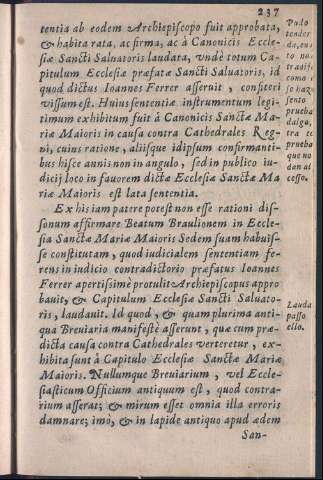 237
tentia ab eodem Archiepiscopo fuit approbata,
& habita rata, ac firma, ac à Canonicis Eccle-
siæ Sancti Saluatoris laudata, vndè totum Ca-
pitulum Ecclesiæ præfatæ Sancti Saluatoris, id
quod dictus Ioannes Ferrer asseruit, confiteri
vissum est. Huius sententiæ instrumentum legi-
timum exhibitum fuit à Canonicis Sanctæ Ma-
riæ Maioris in causa contra Cathedrales Reg-
ni, cuius ratione, aliisque idipsum confirmanti-
bus hisce annis non in angulo, sed in publico iu-
dicij loco in fauorem dictæ Ecclesiæ Sanctæ Ma
riæ Maioris est lata sententia.
Ex his iam patere potest non esse rationi dis-
sonum affirmare Beatum Braulionem in Eccle-
sia Sanctæ Mariæ Maioris Sedem suam habuis-
se constitutam, quod iudicialem sententiam fe-
rens in iudicio contradictorio præfatus Ioannes
Ferrer apertissimè protulit Archiepiscopus appro
bauit, & Capitulum Ecclesiæ Sancti Saluato-
ris, laudauit. Id quod, & quam plurima anti-
qua Breuiaria manifestè asserunt, quæ cum præ-
dicta causa contra Cathedrales verteretur, ex-
hibita sunt à Capitulo Ecclesiæ Sanctæ Mariæ
Maioris. Nullumque Breuiarium, vel Eccle-
siasticum Officium antiquum est, quod contra-
rium asserat; & mirum esset omnia illa erroris
damnare; imò, & in lapide antiquo apud ædem
San-
Pudo
prueba
que no
Lauda
passo
ello.